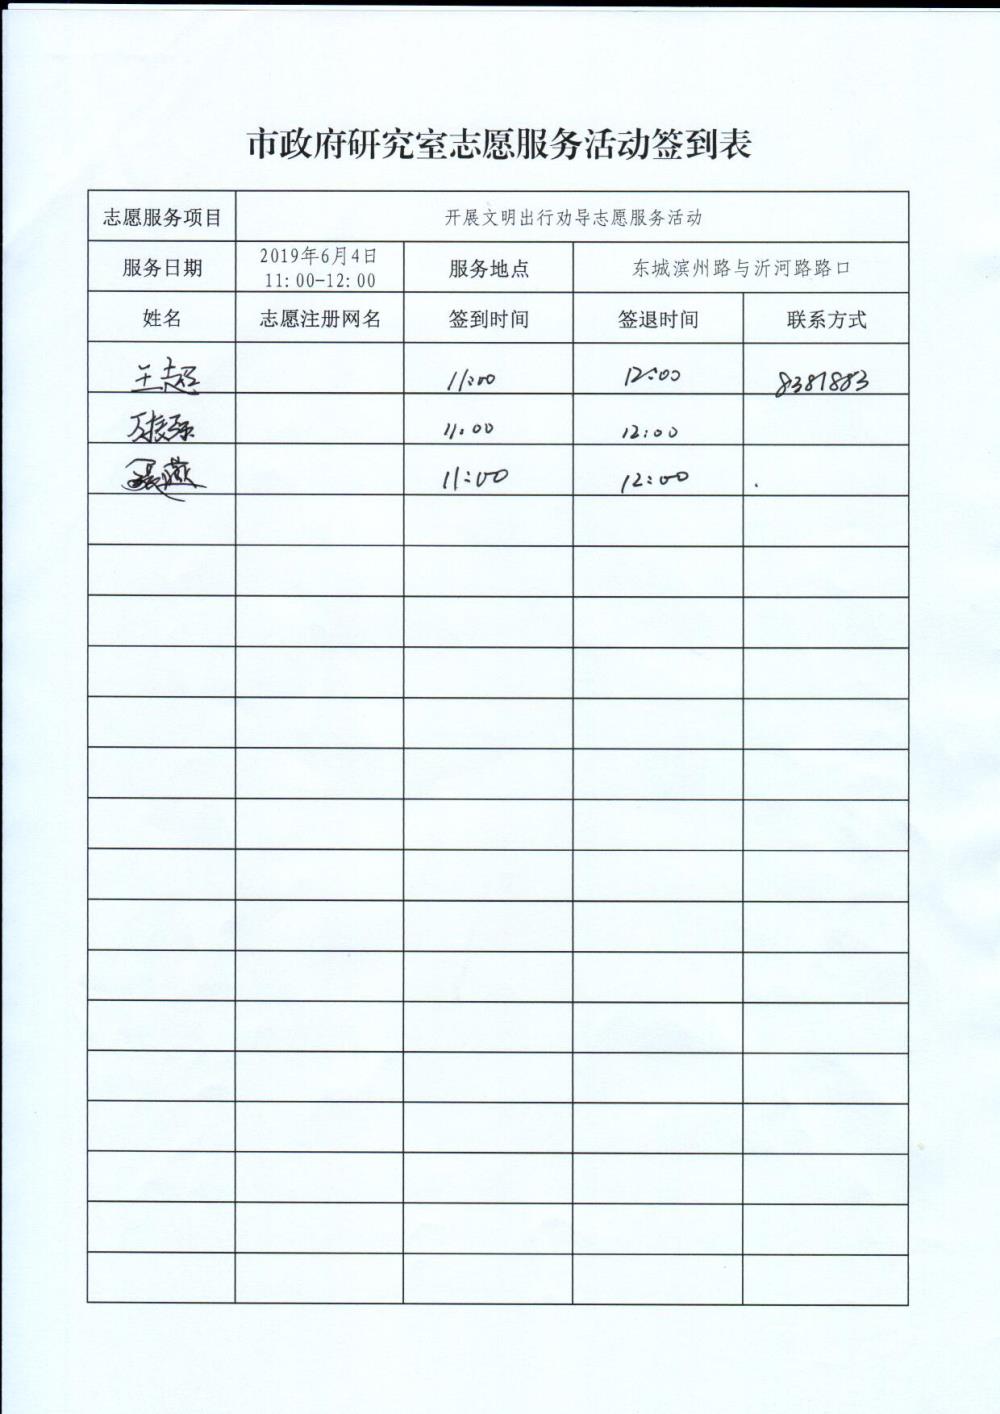 市政府研究室志愿服务活动签到表
志愿服务项目 开展文明出行劝导志愿服务活动
服务日期 2019年6月4日 11:00-12:00 服务地点 东城滨州路与沂河路路口
姓名 志愿注册网名 签到时间 签退时间 联系方式
王超 11:00 12:00 8381883
11:00 12:00
11:00 12:00